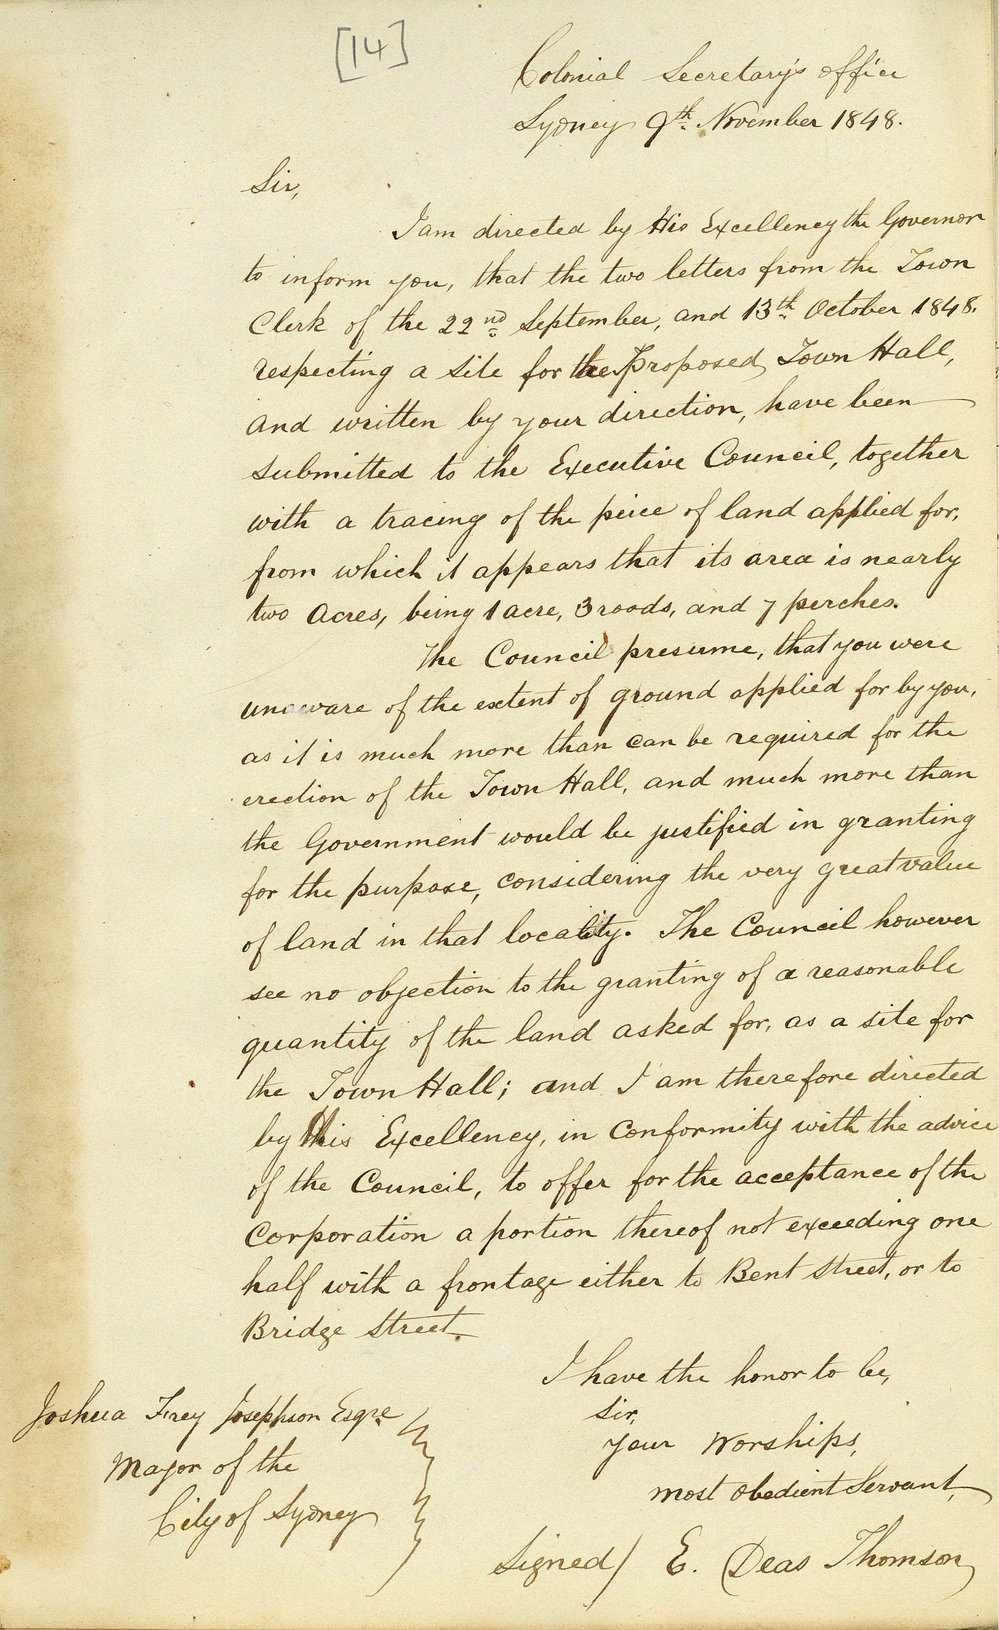 [14]
Colonial Secretary's office
Sydney 9th. November 1848.
Sir,
I am directed by His Excellency the Governor
to inform you, that the two letters from the Town
Clerk of the 22nd September, and 13th October 1848.
respecting a site for the Proposed Town Hall,
and written by your direction, have been
submitted to the Executive Council, together
with a tracing of the peice of land applied for,
from which it appears that its area is nearly
two Acres, being 1 acre, 3 roods, and 7 perches.
The Council presume, that you were
unaware of the extent of ground applied for by you,
as it is much more than can be required for the
erection of the Town Hall, and much more than
the Government would be justified in granting
for the purpose, considering the very great value
of land in that locality. The Council however
see no objection to the granting of a reasonable
quantity of the land asked for, as a site for
the Town Hall; and I am therefore directed
by His Excellency, in conformity with the advice
of the Council, to offer for the acceptance of the
Corporation a portion thereof not exceeding one
half with a frontage either to Bent Street, or to
Bridge Street.
I have the honor to be,
Sir,
Your Worships,
most obedient Servant,
Signed / E. Deas Thomson
Joshua Frey Josephson Esqre
Mayor of the
City of Sydney